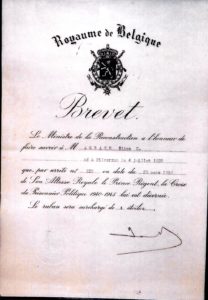 Royaume de Belgique
Brevet.
Le Ministre de la Reconstruction a l'honneur de
faire savoir à M.
né à le juillet
que, par arrêté en date du
de Son Altesse Royale le Prince Régent, la Croix
du Prisonnier Politique 1940-1945 lui est décernée.
Le ruban sera surchargé de étoiles.